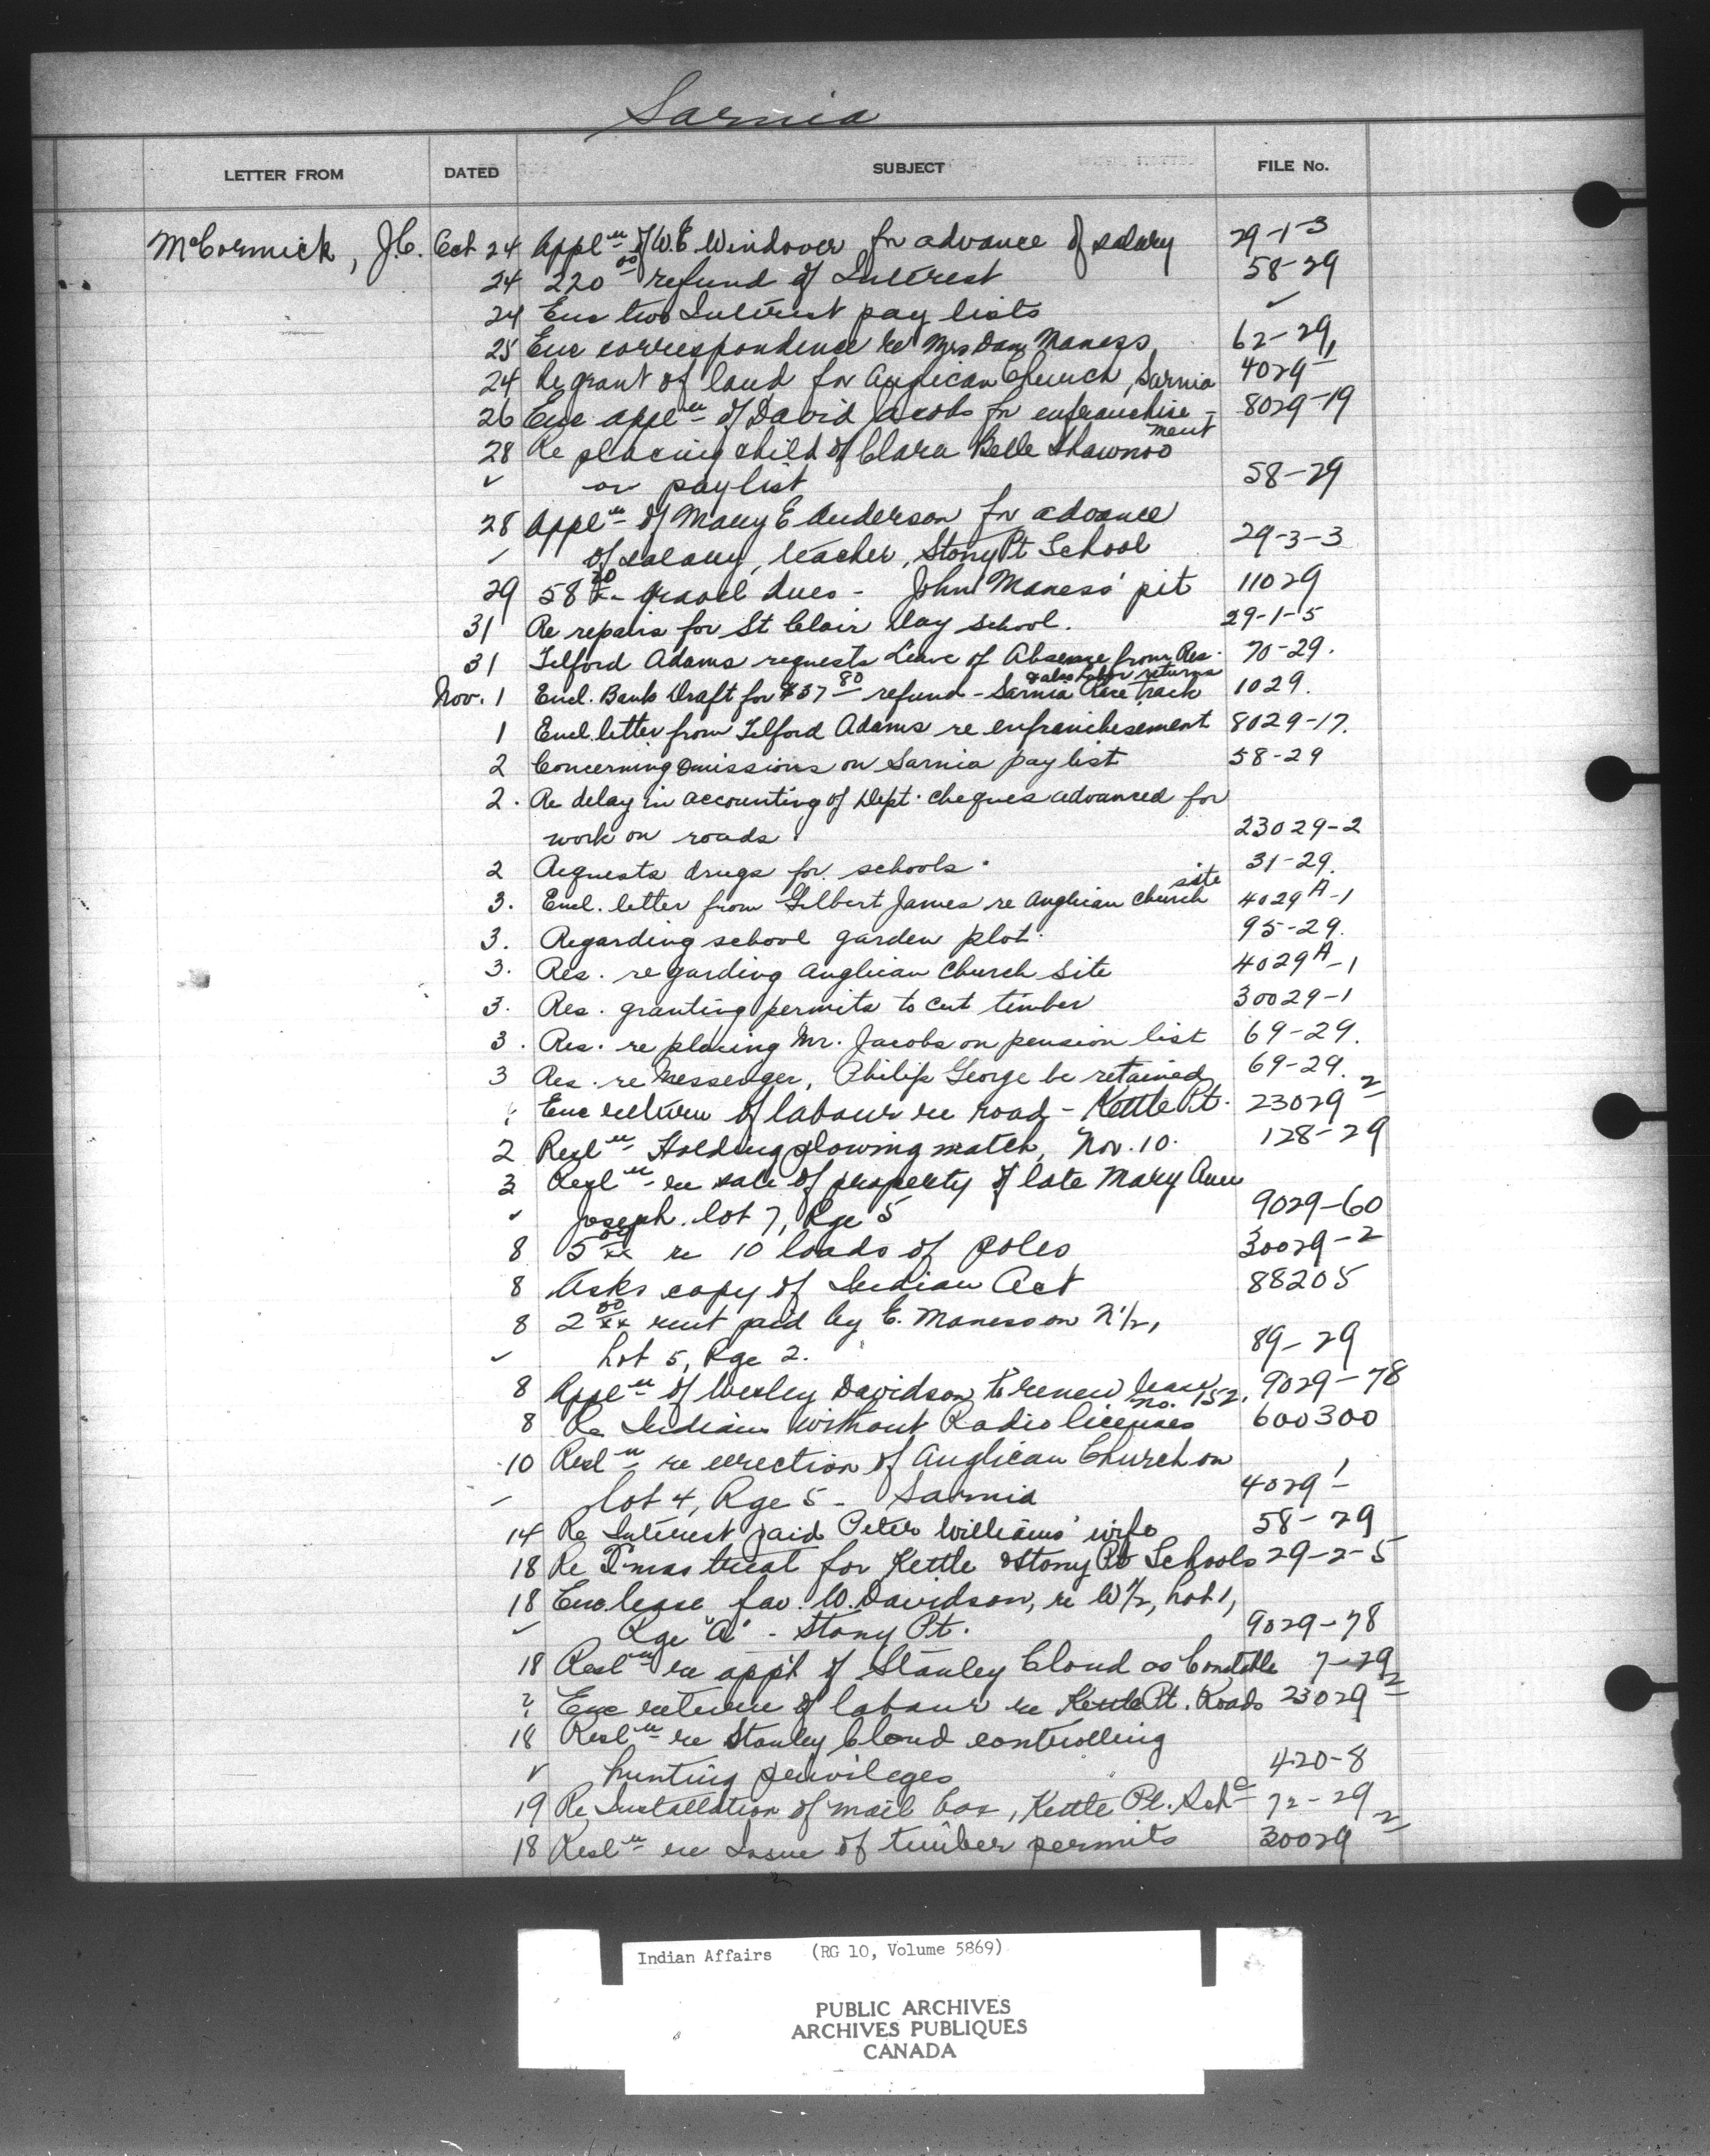 Sarnia
LETTER FROM DATED SUBJECT FILE No.
McCormick, J.C. Oct 24 Applⁿ of W.E Windover for advance of salary 29-1-3
24 220⁰⁰ refund of Interest 58-29
24 Enc two Interest pay lists ✓
25 Enc correspondence re Mrs Dan Maness 62-29
24 Re grant of land for Anglican Church, Sarnia 4029-1
26 Enc applⁿ of David Jacobs for enfranchise- 8029-19
ment
28 Re placing child of Clara Belle Shawnoo
✓ on paylist 58-29
28 Applⁿ of Mary E Anderson for advance
✓ of salary, teacher, Stony Pt School 29-3-3
29 58 gravel dues - John Maness' pit 11029
31 Re repairs for St Clair Day School. 29-1-5
31 Telford Adams requests Leave of Absence from Res. 70-29.
& also labor returns
Nov. 1 Encl. Bank Draft for $37⁸⁰ refund - Sarnia Race Track 1029.
1 Encl. letter from Telford Adams re enfranchisement 8029-17.
2 Concerning omissions on Sarnia pay list 58-29
2. Re delay in accounting of Dept. cheques advanced for
work on roads. 23029-2
2 Requests drugs for schools. 31-29.
site
3. Encl. letter from Gilbert James re Anglican Church 4029ᴬ-1
3. Regarding school garden plot. 95-29.
3. Res. regarding Anglican Church Site 4029ᴬ-1
3. Res. granting permits to cut timber 30029-1
3. Res. re placing Mr. Jacobs on pension list 69-29.
3 Res. re Messenger, Philip George be retained 69-29.
? Enc return of labour re road - Kettle Pt. 23029-2
2 Reslⁿ Holding plowing match, Nov. 10. 128-29
3 Reslⁿ re sale of property of late Mary Ann
✓ Joseph. lot 7, Rge 5 9029-60
8 5⁰⁰ re 10 loads of poles 30029-2
8 Asks copy of Indian Act 88205
8 2⁰⁰ rent paid by E. Maness on N½,
✓ Lot 5, Rge 2. 89-29
8 Applⁿ of Wesley Davidson to renew lease 9029-78
no. 152.
8 Re Indians without Radio licenses 600300
10 Reslⁿ re erection of Anglican Church on
✓ lot 4, Rge 5 - Sarnia 4029-1
14 Re Interest paid Peter Williams' wife 58-29
18 Re X'mas treat for Kettle & Stony Pt Schools 29-2-5
18 Enc lease fav. W. Davidson, re W½, Lot 1,
✓ Rge "A" - Stony Pt. 9029-78
18 Reslⁿ re app't of Stanley Cloud as Constable 7-29
? Enc return of labour re Kettle Pt. Roads 23029-2
18 Reslⁿ re Stanley Cloud controlling
✓ hunting privileges 420-8
19 Re Installation of mail box, Kettle Pt. Schˡ 72-29
18 Reslⁿ re Issue of timber permits 30029-2
Indian Affairs (RG 10, Volume 5869)
PUBLIC ARCHIVES
ARCHIVES PUBLIQUES
CANADA